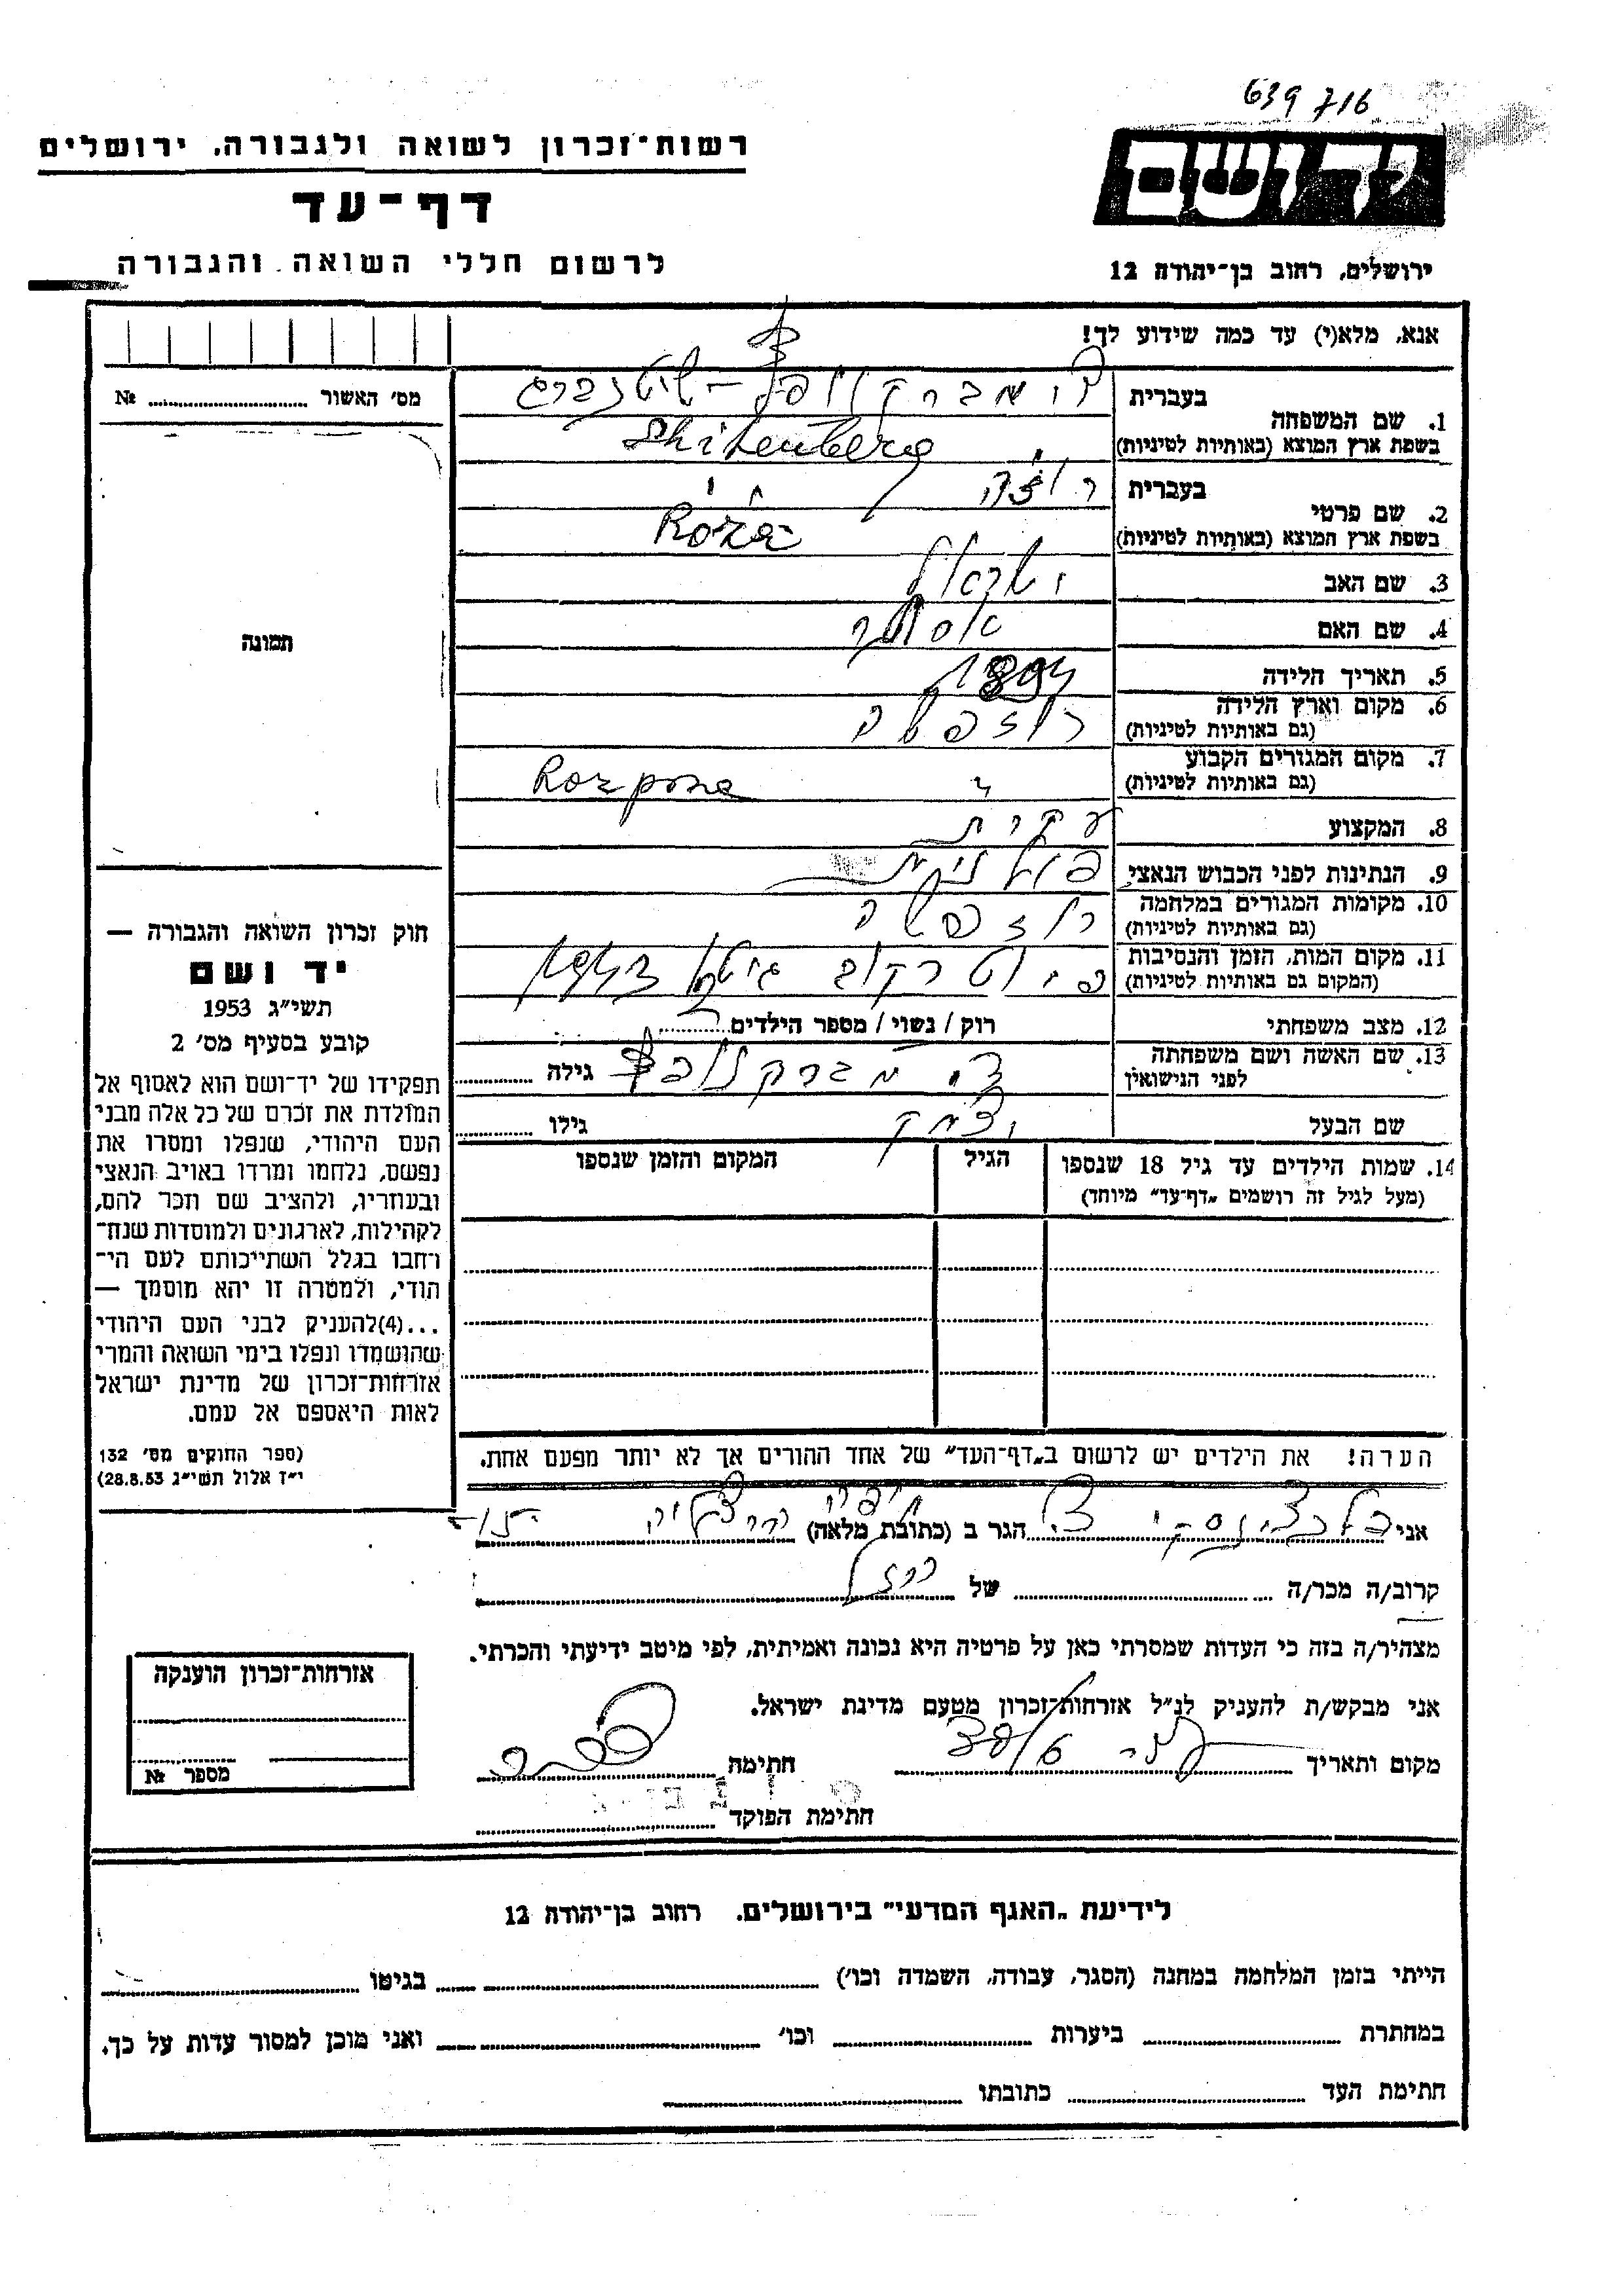 639716
רשות־זכרון לשואה ולגבורה, ירושלים
דף־עד
לרשום חללי השואה והגבורה
ידושם
ירושלים, רחוב בן־יהודה 12
אנא, מלא(י) עד כמה שידוע לך!
מס׳ האשור № 
1. שם המשפחה
בעברית שיטנברג
בשפת ארץ המוצא (באותיות לטיניות) Shitenberg
2. שם פרטי
בעברית רוזה
בשפת ארץ המוצא (באותיות לטיניות) Róża
3. שם האב ישראל
4. שם האם אסתר
5. תאריך הלידה
6. מקום וארץ הלידה
(גם באותיות לטיניות)
7. מקום המגורים הקבוע
(גם באותיות לטיניות)
8. המקצוע עקרת
9. הנתינות לפני הכבוש הנאצי פולנית
10. מקומות המגורים במלחמה
(גם באותיות לטיניות)
11. מקום המות, הזמן והנסיבות
(המקום גם באותיות לטיניות) פיוטרקוב גיטו
12. מצב משפחתי רוק / נשוי / מספר הילדים
13. שם האשה ושם משפחתה
לפני הנישואין
גילה
שם הבעל יצחק גילו
14. שמות הילדים עד גיל 18 שנספו
(מעל לגיל זה רושמים „דף־עד״ מיוחד)
הגיל
המקום והזמן שנספו
הערה! את הילדים יש לרשום ב„דף־העד״ של אחד ההורים אך לא יותר מפעם אחת.
תמונה
חוק זכרון השואה והגבורה —
יד ושם
תשי״ג 1953
קובע בסעיף מס׳ 2
תפקידו של יד־ושם הוא לאסוף אל
המולדת את זכרם של כל אלה מבני
העם היהודי, שנפלו ומסרו את
נפשם, נלחמו ומרדו באויב הנאצי
ובעוזריו, ולהציב שם וזכר להם,
לקהילות, לארגונים ולמוסדות שנח־
רחבו בגלל השתייכותם לעם הי־
הודי, ולמטרה זו יהא מוסמך —
...(4)להעניק לבני העם היהודי
שהושמדו ונפלו בימי השואה והמרי
אזרחות־זכרון של מדינת ישראל
לאות היאספם אל עמם.
(ספר החוקים מס׳ 132
י״ז אלול תשי״ג 28.8.53)
אני הגר ב (כתובת מלאה) חיפה
קרוב/ה מכר/ה של
מצהיר/ה בזה כי העדות שמסרתי כאן על פרטיה היא נכונה ואמיתית, לפי מיטב ידיעתי והכרתי.
אני מבקש/ת להעניק לנ״ל אזרחות־זכרון מטעם מדינת ישראל.
מקום ותאריך חתימה
חתימת הפוקד
אזרחות־זכרון הוענקה
מספר №
לידיעת „האגף המדעי״ בירושלים. רחוב בן־יהודה 12
הייתי בזמן המלחמה במחנה (הסגר, עבודה, השמדה וכו׳) בגיטו
במחתרת ביערות וכו׳ ואני מוכן למסור עדות על כך.
חתימת העד כתובתו